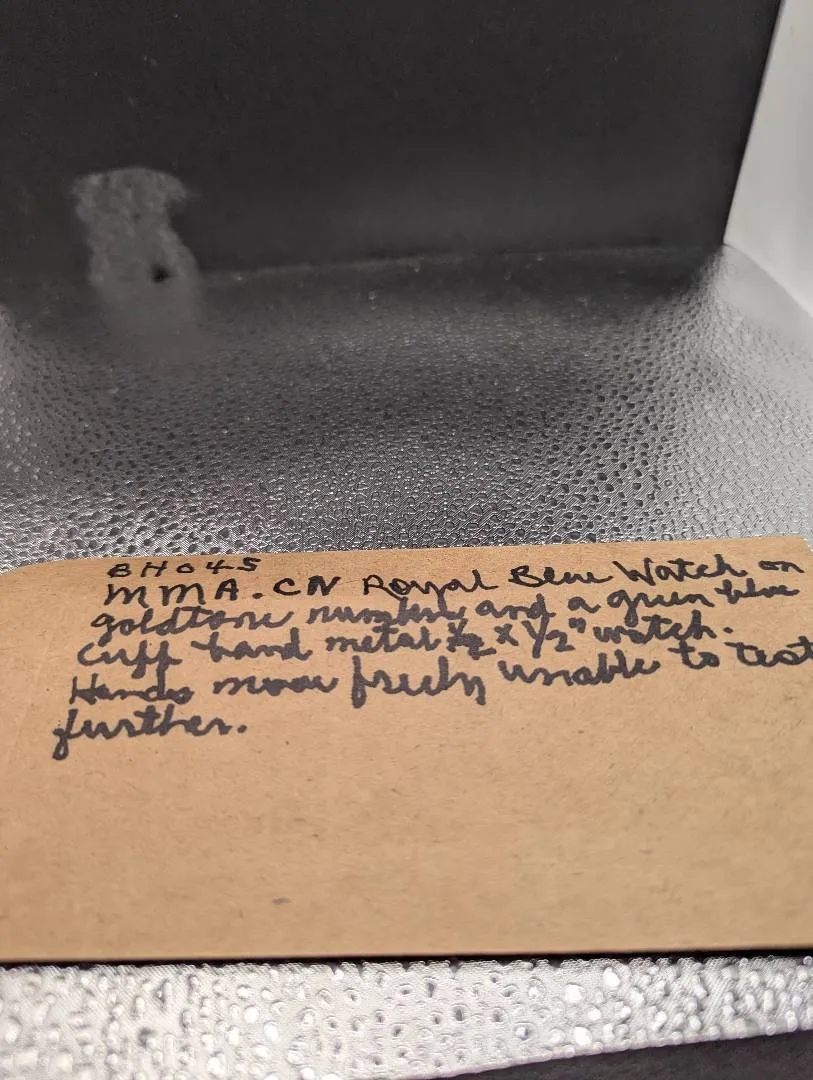 BH045
MMA. CN Royal Blue Watch on
goldtone numbers and a green blue
cuff band metal ½ x ½" watch.
Hands move freely unable to test
further.